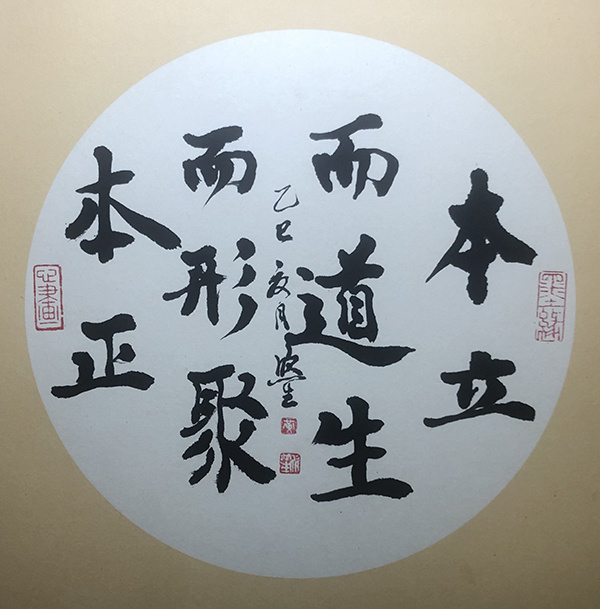 本立
而道生
乙巳夏月
而形聚
本正